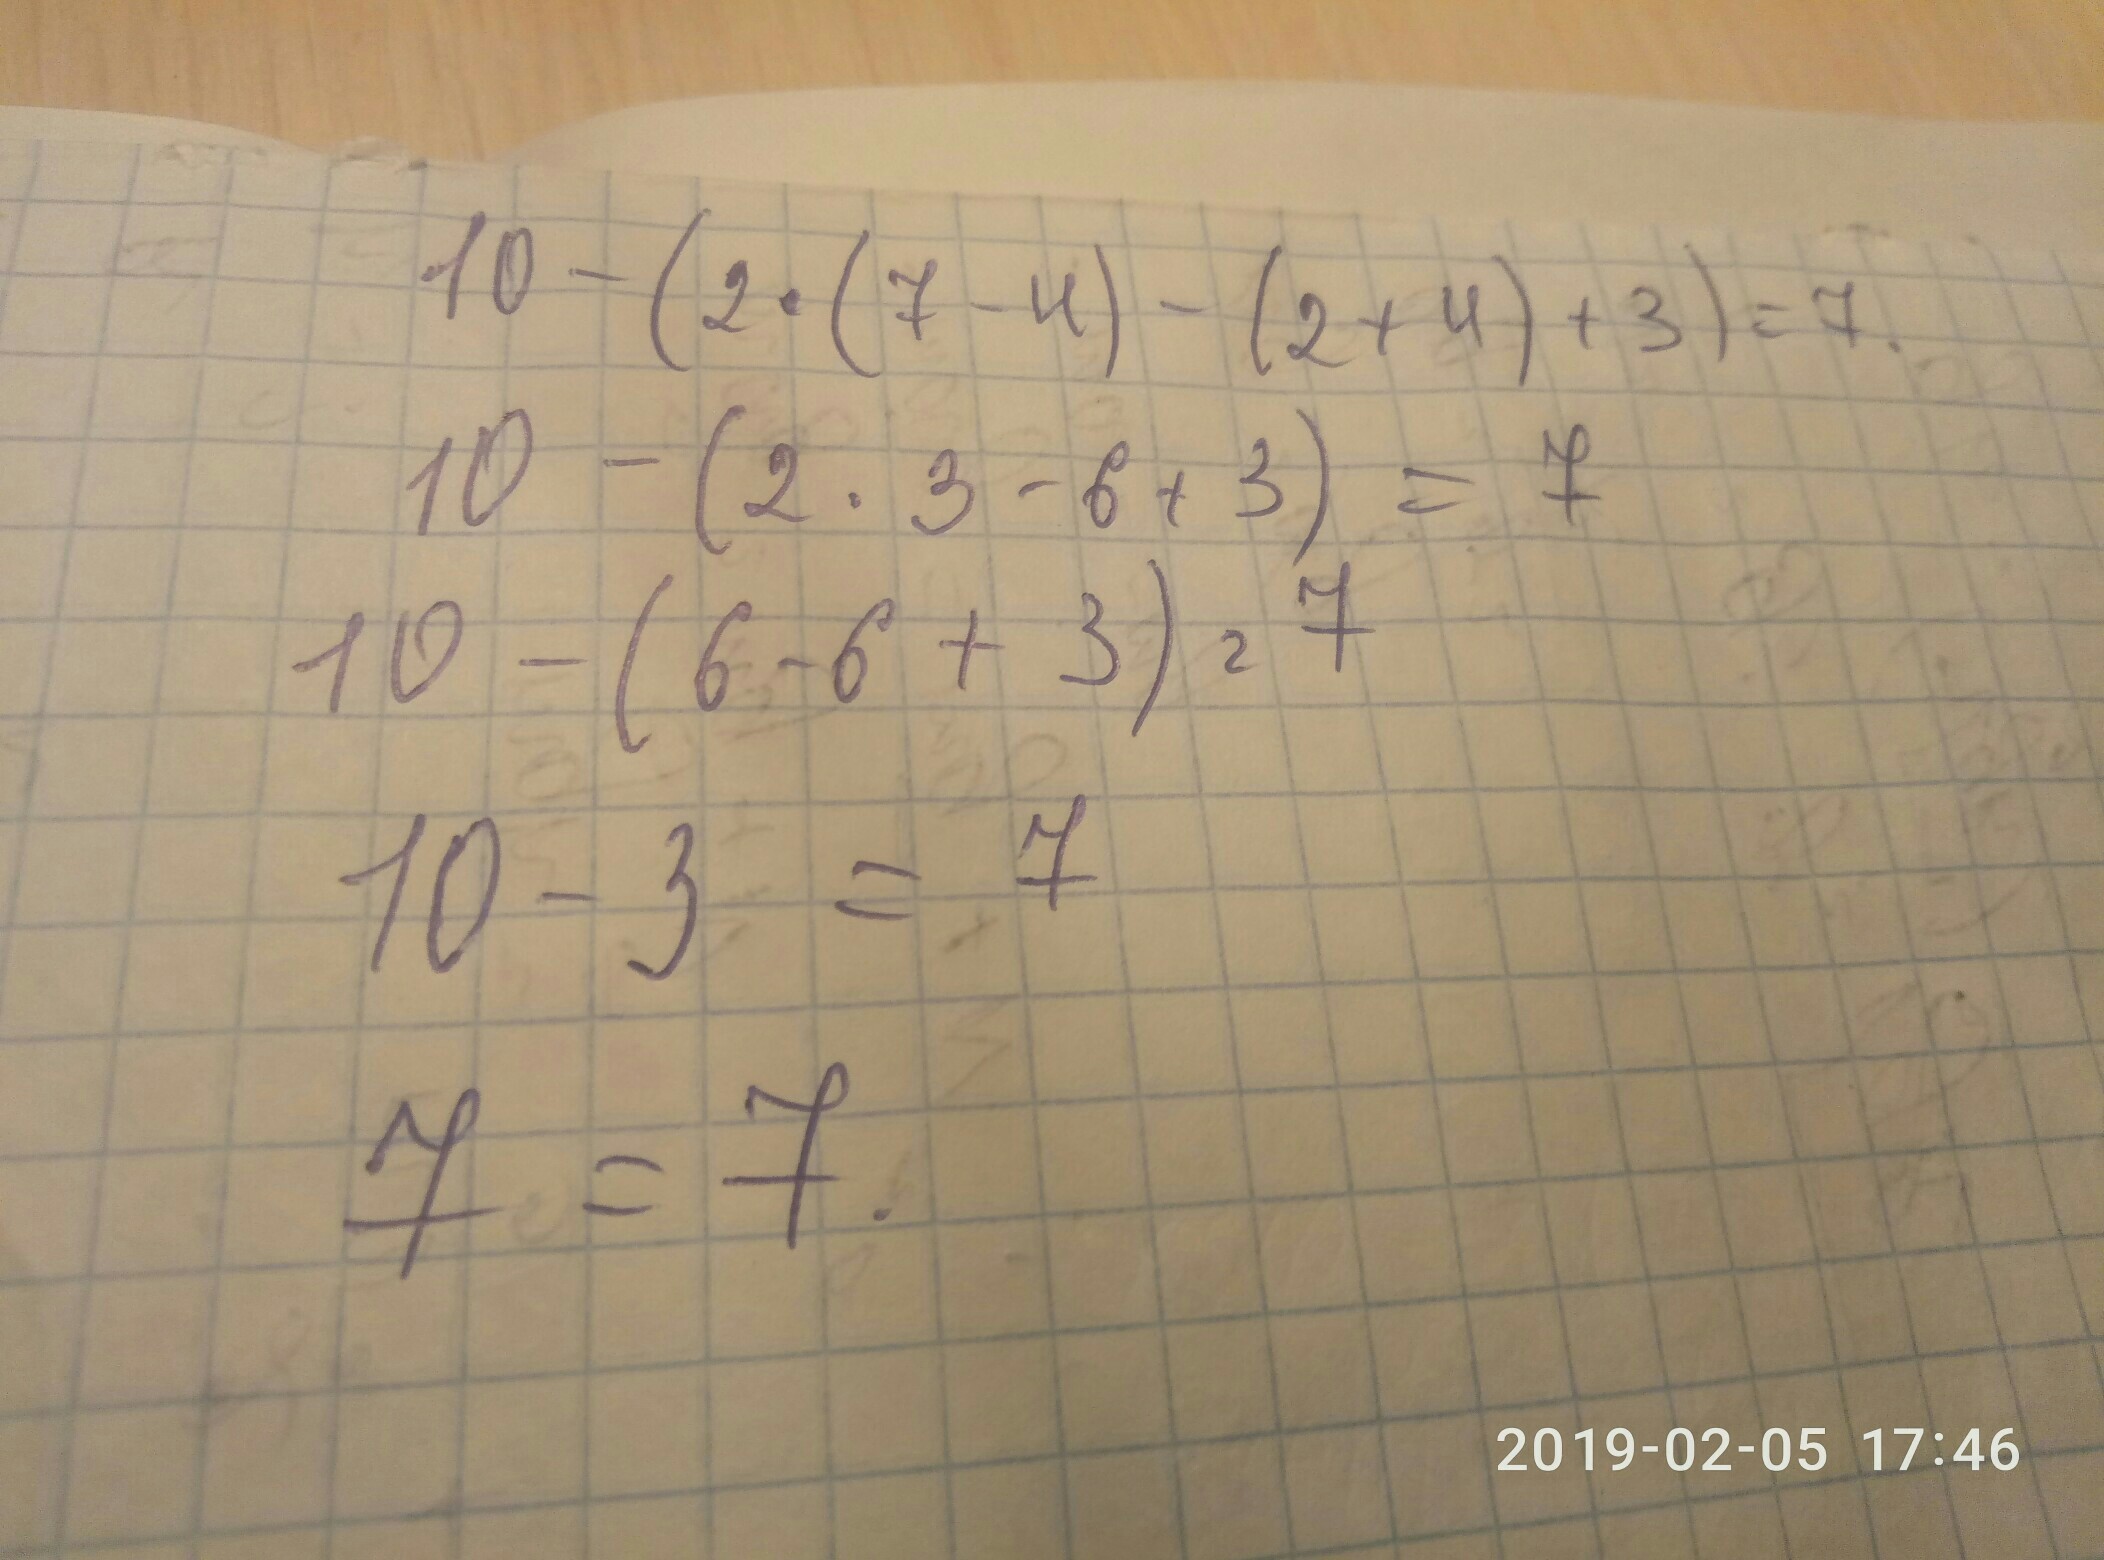 10 - (2 · (7 - 4) - (2 + 4) + 3) = 7.
10 - (2 · 3 - 6 + 3) = 7
10 - (6 - 6 + 3) = 7
10 - 3 = 7
7 = 7.
2019-02-05 17:46